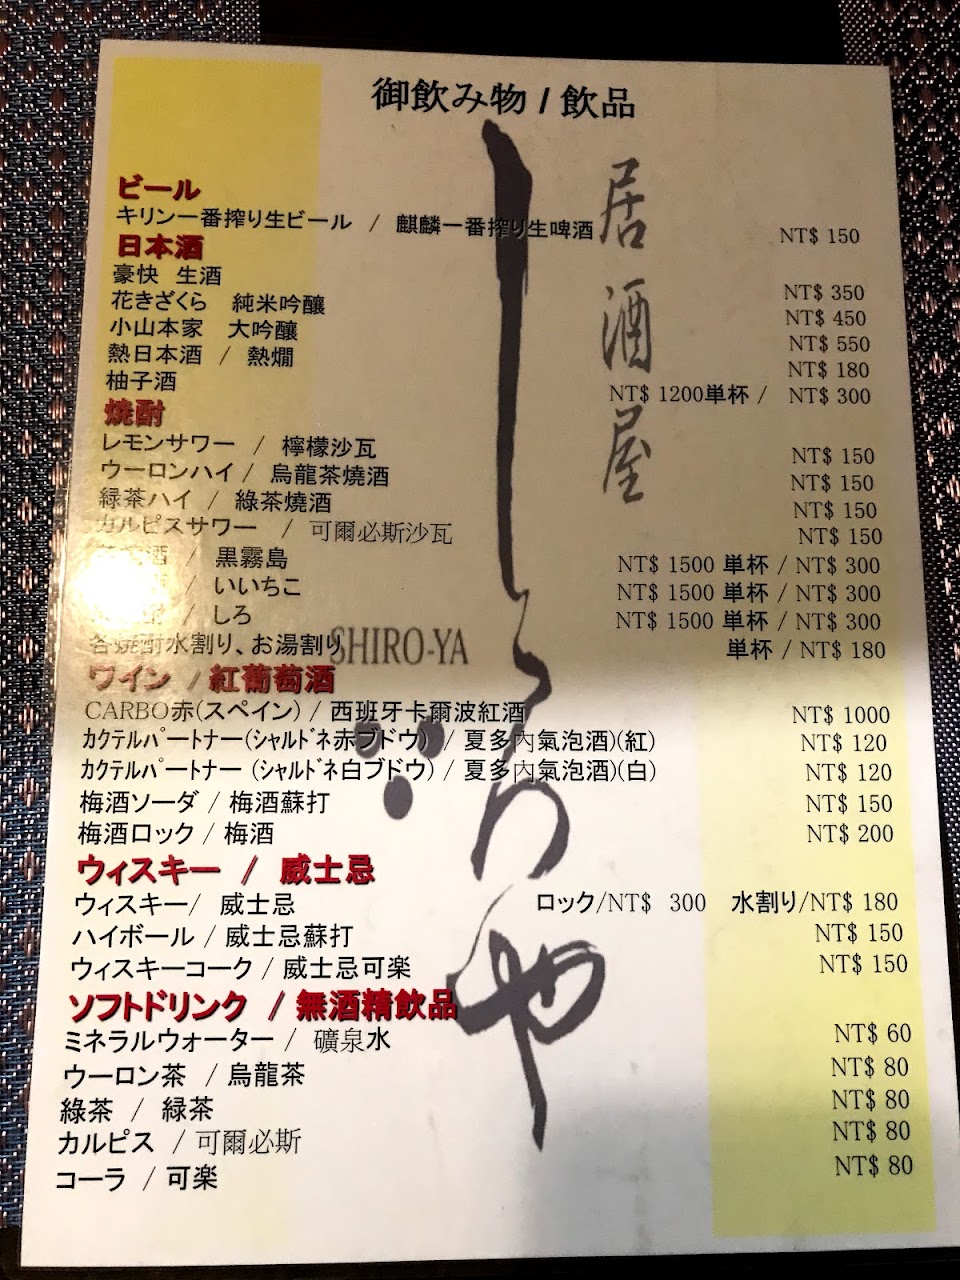 御飲み物 / 飲品
居酒屋
しろや
SHIRO-YA
ビール
キリン一番搾り生ビール / 麒麟一番搾り生啤酒 NT$ 150
日本酒
豪快 生酒 NT$ 350
花きざくら 純米吟釀 NT$ 450
小山本家 大吟釀 NT$ 550
熱日本酒 / 熱燗 NT$ 180
柚子酒 NT$ 1200単杯 / NT$ 300
焼酎
レモンサワー / 檸檬沙瓦 NT$ 150
ウーロンハイ / 烏龍茶燒酒 NT$ 150
緑茶ハイ / 綠茶燒酒 NT$ 150
カルピスサワー / 可爾必斯沙瓦 NT$ 150
酒 / 黒霧島 NT$ 1500 単杯 / NT$ 300
/ いいちこ NT$ 1500 単杯 / NT$ 300
/ しろ NT$ 1500 単杯 / NT$ 300
各焼酎水割り、お湯割り 単杯 / NT$ 180
ワイン / 紅葡萄酒
CARBO赤(スペイン) / 西班牙卡爾波紅酒 NT$ 1000
ｶｸﾃﾙﾊﾟｰトナー(ｼｬﾙﾄﾞﾈ赤ブドウ) / 夏多內氣泡酒)(紅) NT$ 120
ｶｸﾃﾙﾊﾟｰトナー (ｼｬﾙﾄﾞﾈ白ブドウ) / 夏多內氣泡酒)(白) NT$ 120
梅酒ソーダ / 梅酒蘇打 NT$ 150
梅酒ロック / 梅酒 NT$ 200
ウィスキー / 威士忌
ウィスキー/ 威士忌 ロック/NT$ 300 水割り/NT$ 180
ハイボール / 威士忌蘇打 NT$ 150
ウィスキーコーク / 威士忌可楽 NT$ 150
ソフトドリンク / 無酒精飲品
ミネラルウォーター / 礦泉水 NT$ 60
ウーロン茶 / 烏龍茶 NT$ 80
綠茶 / 緑茶 NT$ 80
カルピス / 可爾必斯 NT$ 80
コーラ / 可楽 NT$ 80